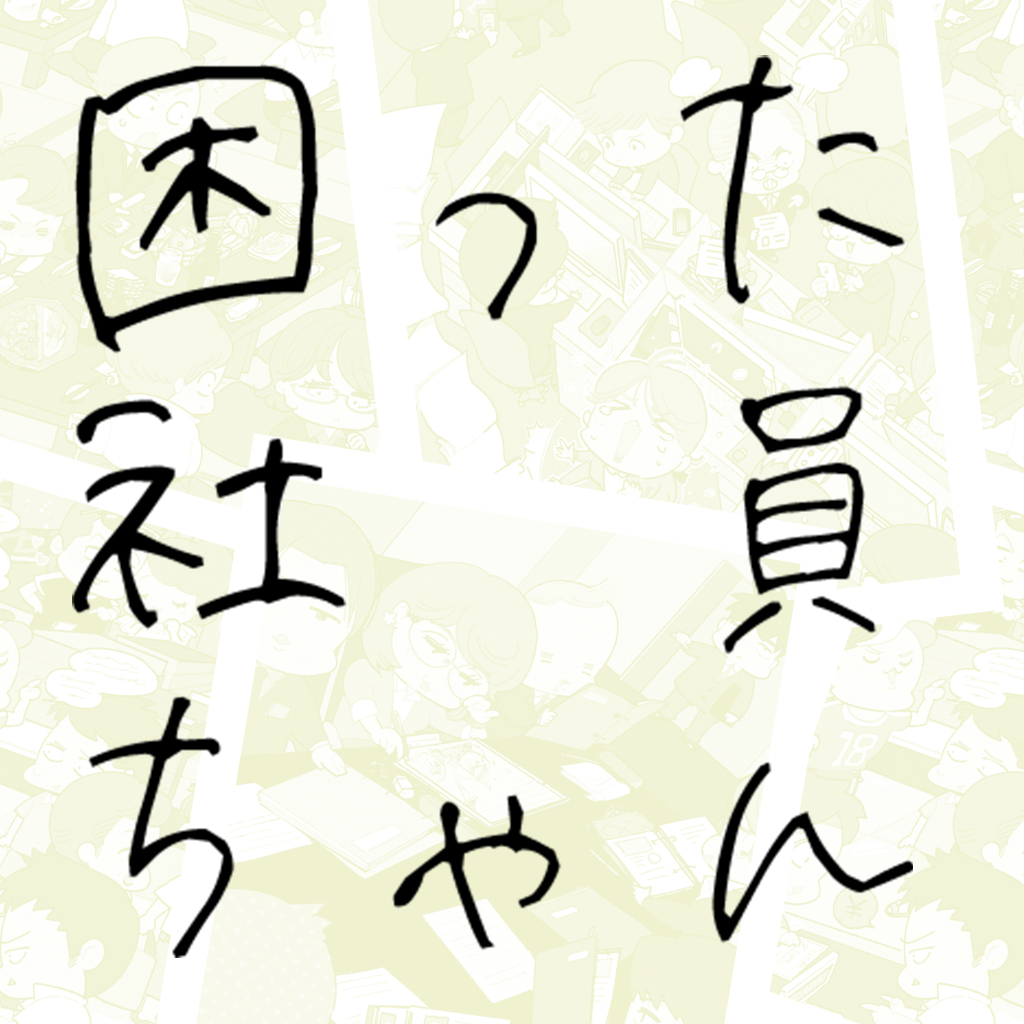 困った
社員
ちゃん
18